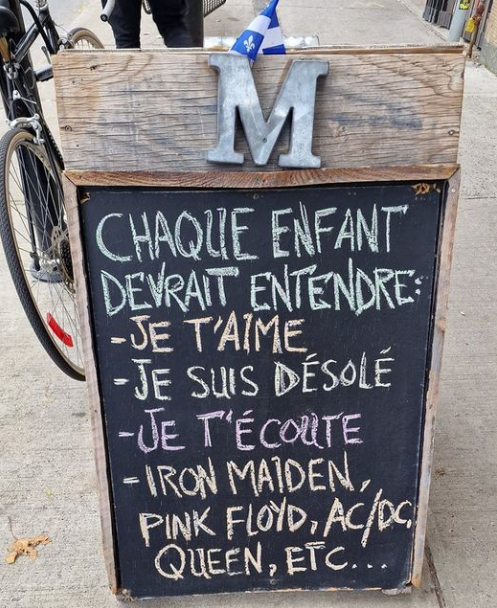 M
CHAQUE ENFANT
DEVRAIT ENTENDRE:
-JE T'AIME
-JE SUIS DÉSOLÉ
-JE T'ÉCOUTE
-IRON MAIDEN,
PINK FLOYD, AC/DC,
QUEEN, ETC...